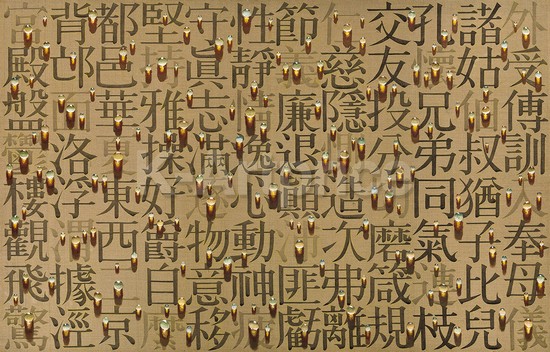 外受傅訓入奉母儀
諸姑伯叔猶子比兒
孔懷兄弟同氣連枝
交友投分切磨箴規
仁慈隱惻造次弗離
節義廉退顚沛匪虧
性靜情逸心動神疲
守眞志滿逐物意移
堅持雅操好爵自縻
都邑華夏東西二京
背邙面洛浮渭據涇
宮殿盤鬱樓觀飛驚